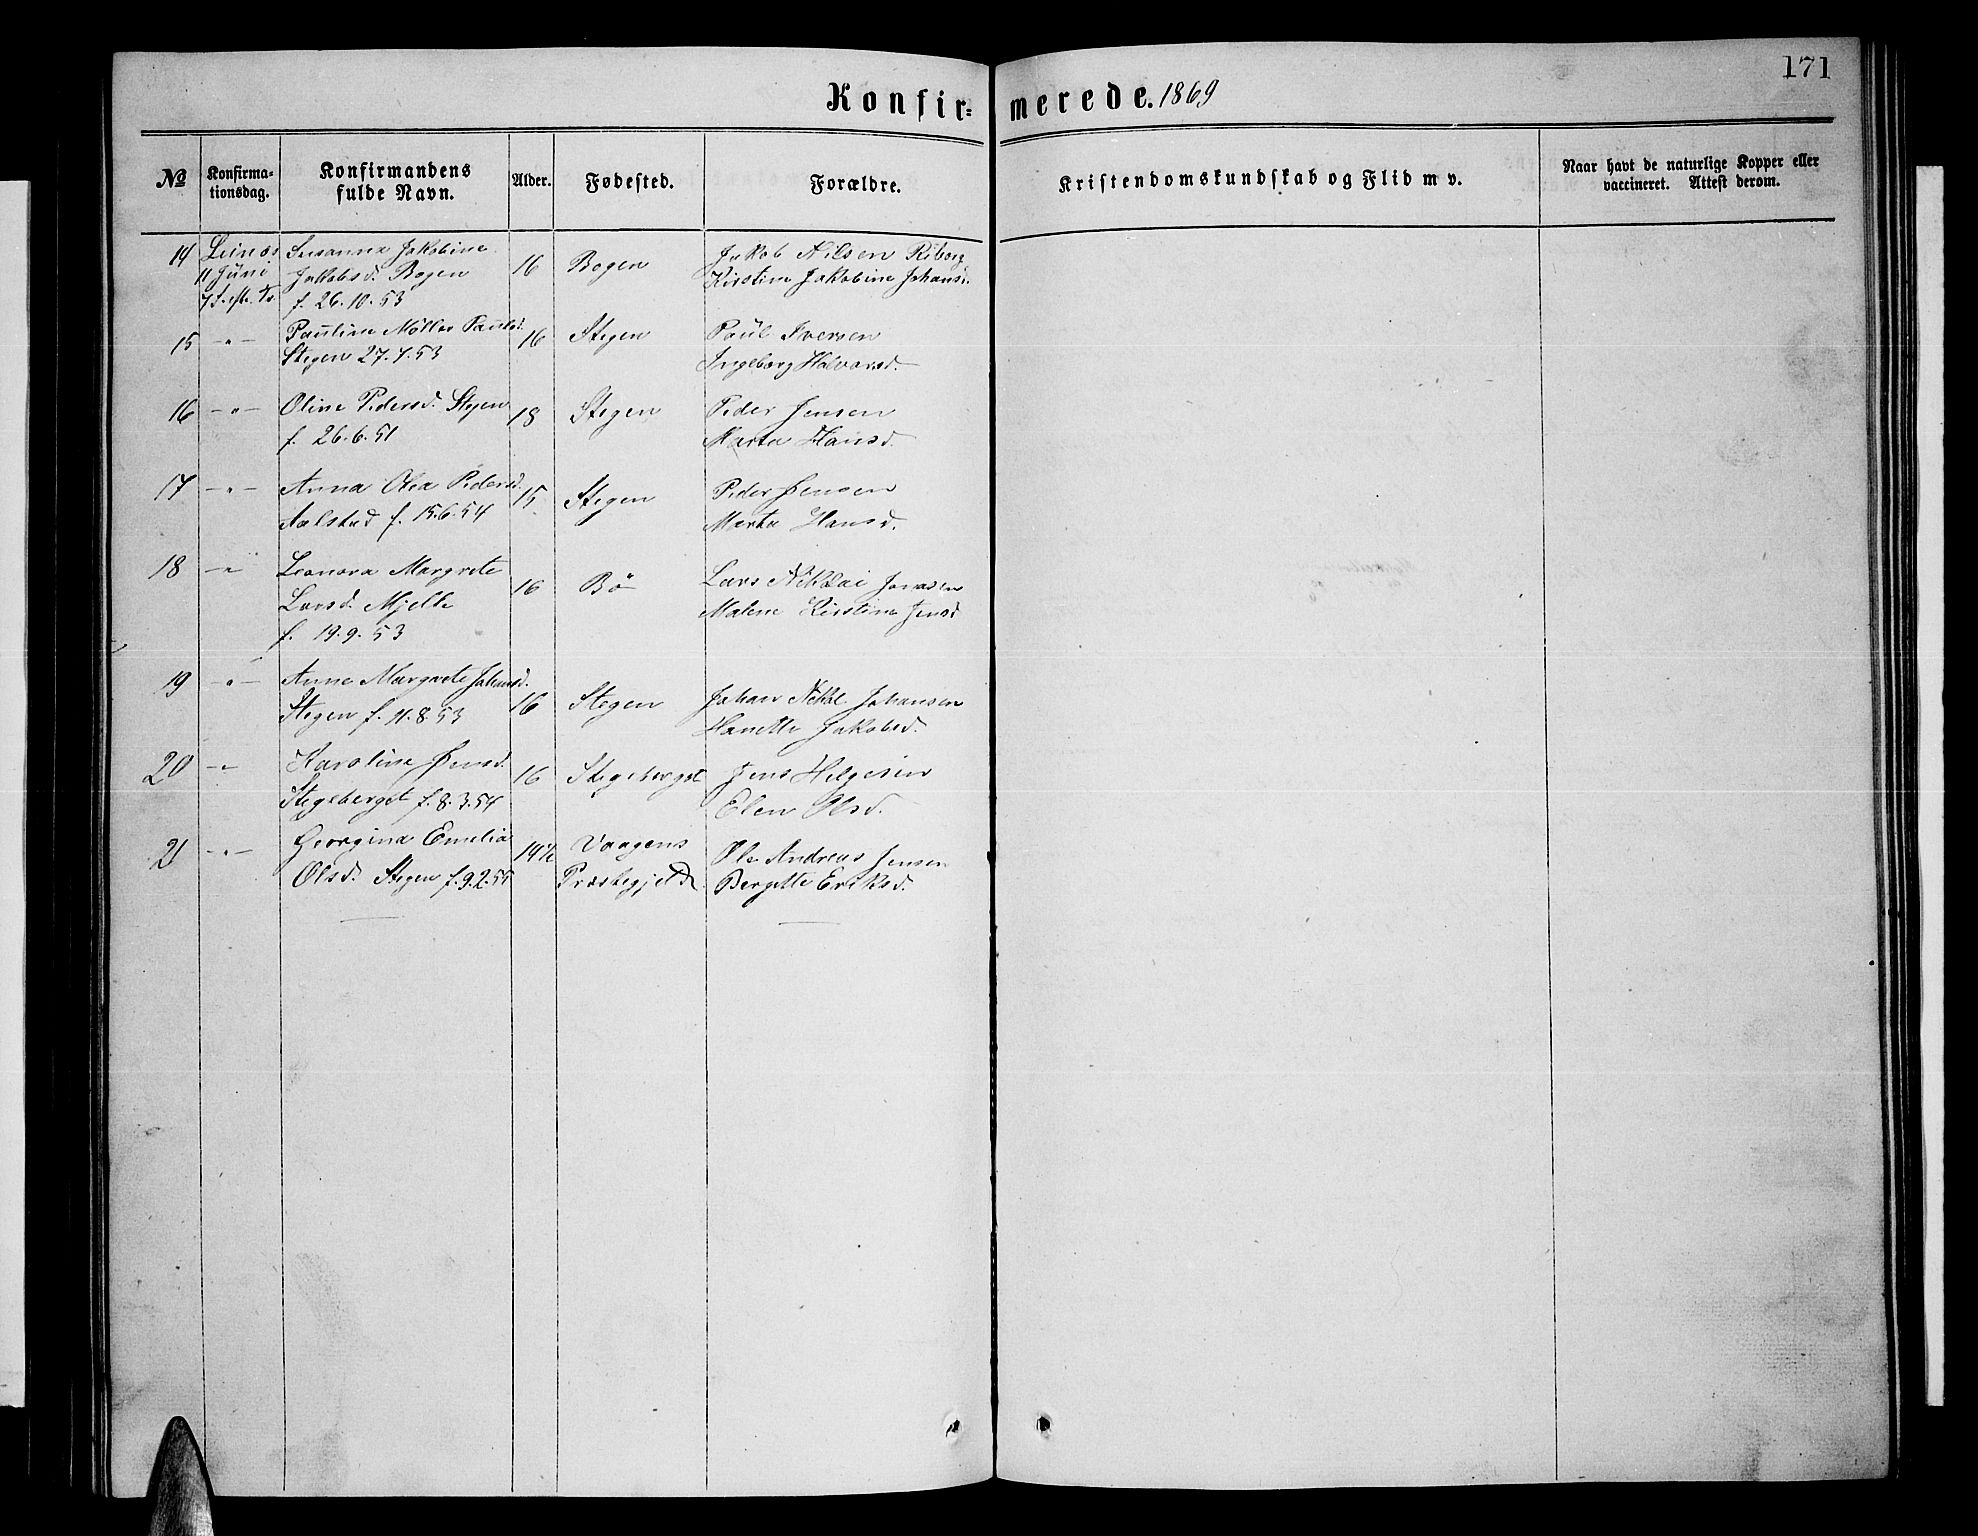 171
Konfir- merede. 1869
No
Konfirma-
tionsdag.
Konfirmandens
fulde Navn.
Alder.
Fødested.
Forældre.
Kristendomskundskab og Flid m v.
Naar havt de naturlige Kopper eller
vaccineret. Attest derom.
14 Leines Susanna Jakobine 16 Bogen Jakob Nilsen Riborg
11 Juni Jakobsd. Bogen Kirstine Jakobine Johansd.
7 S. e. Tr. f. 26.10.53
15 -"- Pauline Möller Paulsd. 16 Stegen Paul Iversen
Stegen 27.7.53 Ingeborg Halvorsd.
16 -"- Oline Pedersd. Stegen 18 Stegen Peder Jensen
f. 26.6.51 Marta Hansd.
17 -"- Anna Olea Pedersd. 15 Stegen Peder Jensen
Aalstad f. 15.6.54 Marta Hansd.
18 -"- Leonora Margrete 16 Bø Lars Nikolai Jonasen
Larsd. Mjelle Malene Kirstine Jensd
f. 19.9.53
19 -"- Anne Margrete Johansd. 16 Stegen Johan Nikol Johansen
Stegen f. 11.8.53 Hanette Jakobsd.
20 -"- Karoline Jensd. 16 Stegeberget Jens Helgesen
Stegeberget f. 8.3.54 Elen Olsd.
21 -"- Georgina Emelia 14½ Vaagens Ole Andreas Jensen
Olsd. Stegen f. 9.2.55 Præstegjeld Bergitte Eriksd.